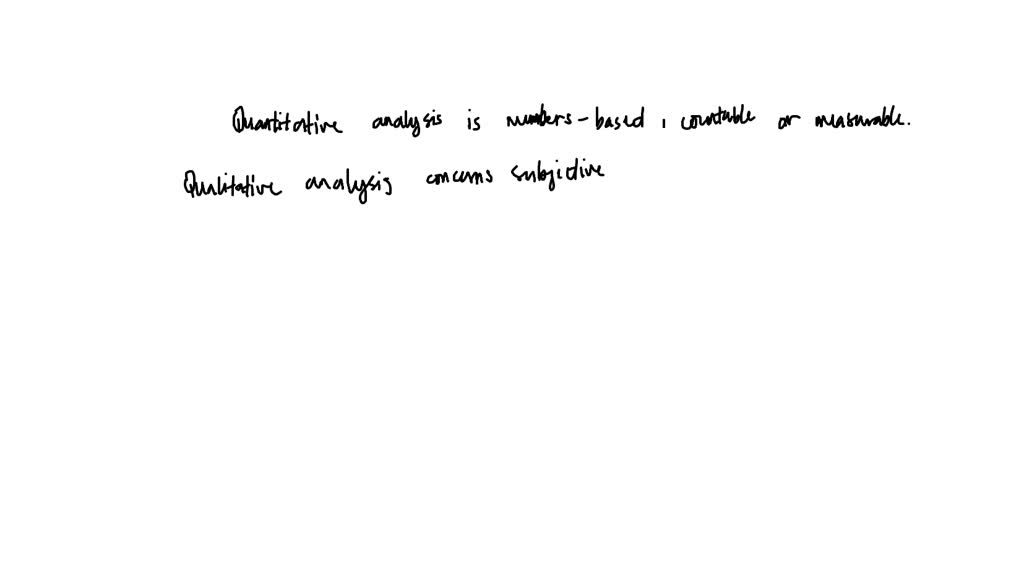 Quantitative analysis is numbers-based, countable or measurable.
Qualitative analysis concerns subjective